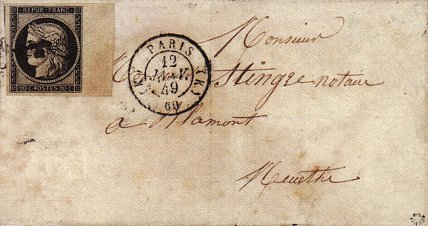 REPUB. FRANC.
20 C. POSTES 20 C.
PARIS
12
JANV.
49
60
Monsieur
Stingre notaire
à Blamont
Meurthe